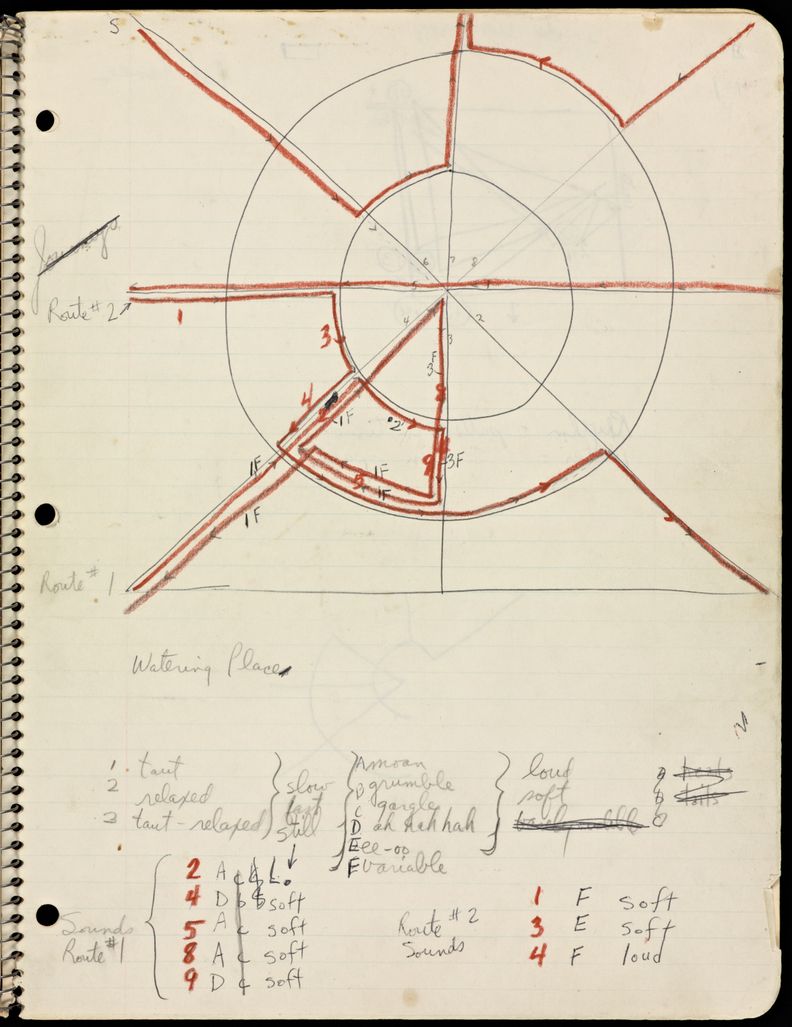 S
6 7 8
5
Route #2
1
4
3
2
3
F
3
8
4
"2"
1F
1F
3F
9
1F
5
1F
1F
Route #1
Watering Place
1 taut
2 relaxed
3 taut-relaxed
slow
fast
still
A moan
B grumble
C gargle
D ah hah hah
E ee-oo
F variable
loud
soft
Sounds
Route #1
2 A L.
4 D soft
5 A c soft
8 A c soft
9 D c soft
Route #2
Sounds
1 F soft
3 E soft
4 F loud